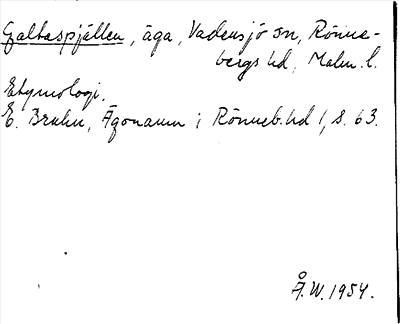 Galtaspjällen, äga, Vadensjö sn, Rönne-
bergs hd, Malm. l.
Etymologi.
E. Bruhn, Ägonamn i Rönneb. hd 1, s. 63.
Å.W. 1954.